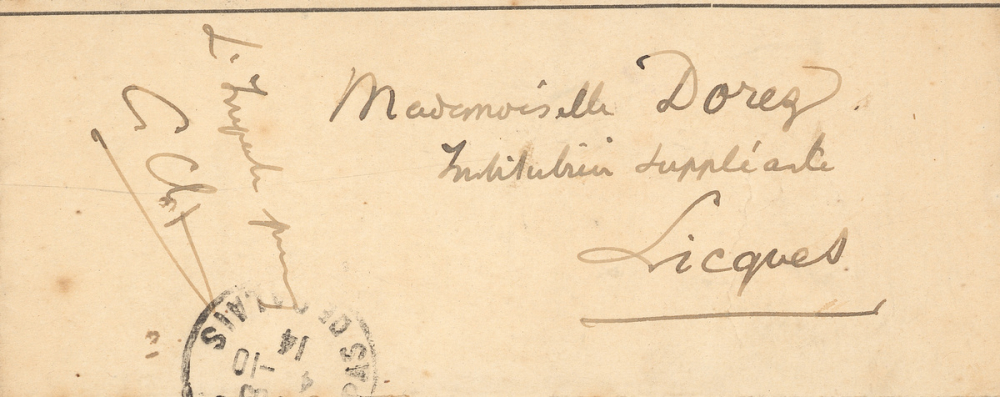 Mademoiselle Dorez.
Institutrice suppléante
Licques
L'Inspecteur prim
PAS DE CALAIS
14
-10
4